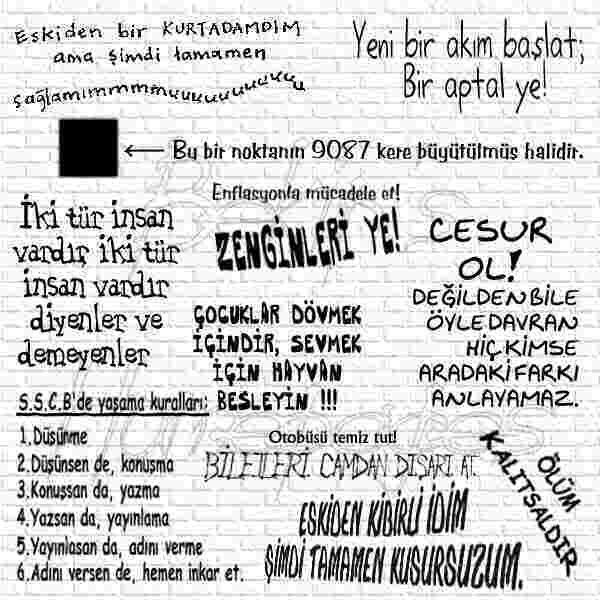 Eskiden bir KURTADAMDIM
ama şimdi tamamen
sağlamımmmmuuuuuuuuuu
Yeni bir akım başlat;
Bir aptal ye!
Bu bir noktanın 9087 kere büyütülmüş halidir.
İki tür insan
vardır, iki tür
insan vardır
diyenler ve
demeyenler
Enflasyonla mücadele et!
ZENGİNLERİ YE!
CESUR
OL!
DEĞİLDEN BİLE
ÖYLE DAVRAN
HİÇ KİMSE
ARADAKİ FARKI
ANLAYAMAZ.
ÇOCUKLAR DÖVMEK
İÇİNDİR, SEVMEK
İÇİN HAYVAN
BESLEYİN !!!
S.S.C.B'de yaşama kuralları:
1.Düşünme
2.Düşünsen de, konuşma
3.Konuşsan da, yazma
4.Yazsan da, yayınlama
5.Yayınlasan da, adını verme
6.Adını versen de, hemen inkar et.
Otobüsü temiz tut!
BİLETLERİ CAMDAN DIŞARI AT.
ÖLÜM
KALITSALDIR
ESKİDEN KİBİRLİ İDİM
ŞİMDİ TAMAMEN KUSURSUZUM.